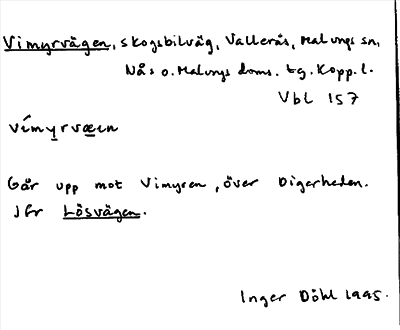 Vimyrvägen, skogsbilväg, Vallerås, Malungs sn,
Nås o. Malungs doms. tg. Kopp. l.
Vbl 157
vímyrvæen
Går upp mot Vimyren, över Digerheden.
Jfr Lösvägen.
Inger Döhl 1995.